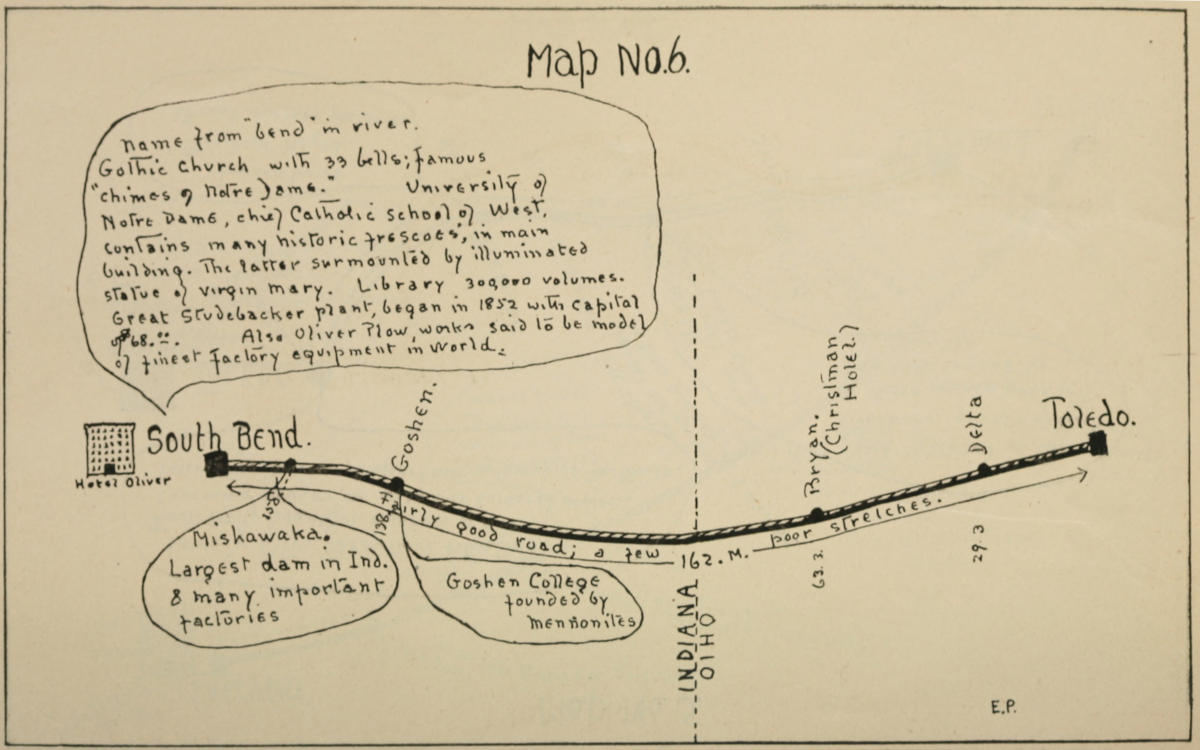 Map No.6.
name from "bend" in river.
Gothic Church with 33 bells; famous
"chimes of Notre Dame." University of
Notre Dame, chief Catholic school of West,
contains many historic frescoes, in main
building. The latter surmounted by illuminated
statue of virgin mary. Library 300,000 volumes.
Great Studebacker plant, began in 1852 with capital
of $68.00. Also Oliver Plow, works said to be model
of finest factory equipment in World.
South Bend.
Hotel Oliver
Goshen.
Bryan.
(Christman
Hotel)
Delta
Toledo.
Fairly good road; a few 162. M. poor stretches.
Mishawaka.
Largest dam in Ind.
& many important
factories
Goshen College
founded by
mennonites
63.2
29.3
INDIANA
OIHO
E.P.